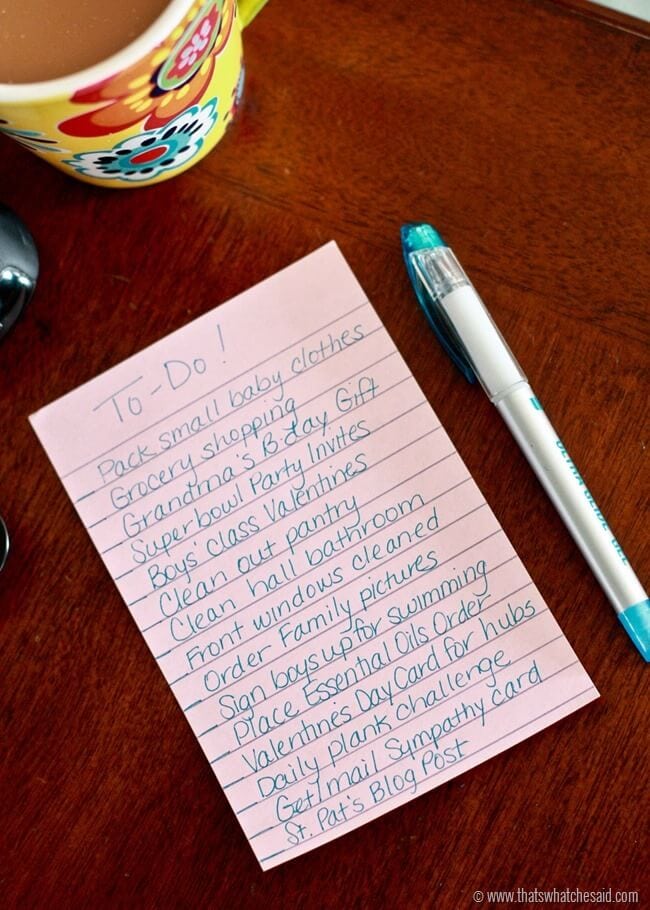 To-Do!
Pack small baby clothes
Grocery shopping
Grandma's B-day Gift
Superbowl Party Invites
Boys class Valentines
Clean out pantry
Clean hall bathroom
Front windows cleaned
Order Family pictures
Sign boys up for swimming
Place Essential Oils Order
Valentines Day Card for hubs
Daily plank challenge
Get/mail Sympathy card
St. Pat's Blog Post
© www.thatswhatchesaid.com